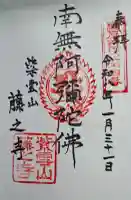 奉拝
令和 年一月三十一日
南無阿彌陀佛
紫雲山
藤之寺
紫雲山